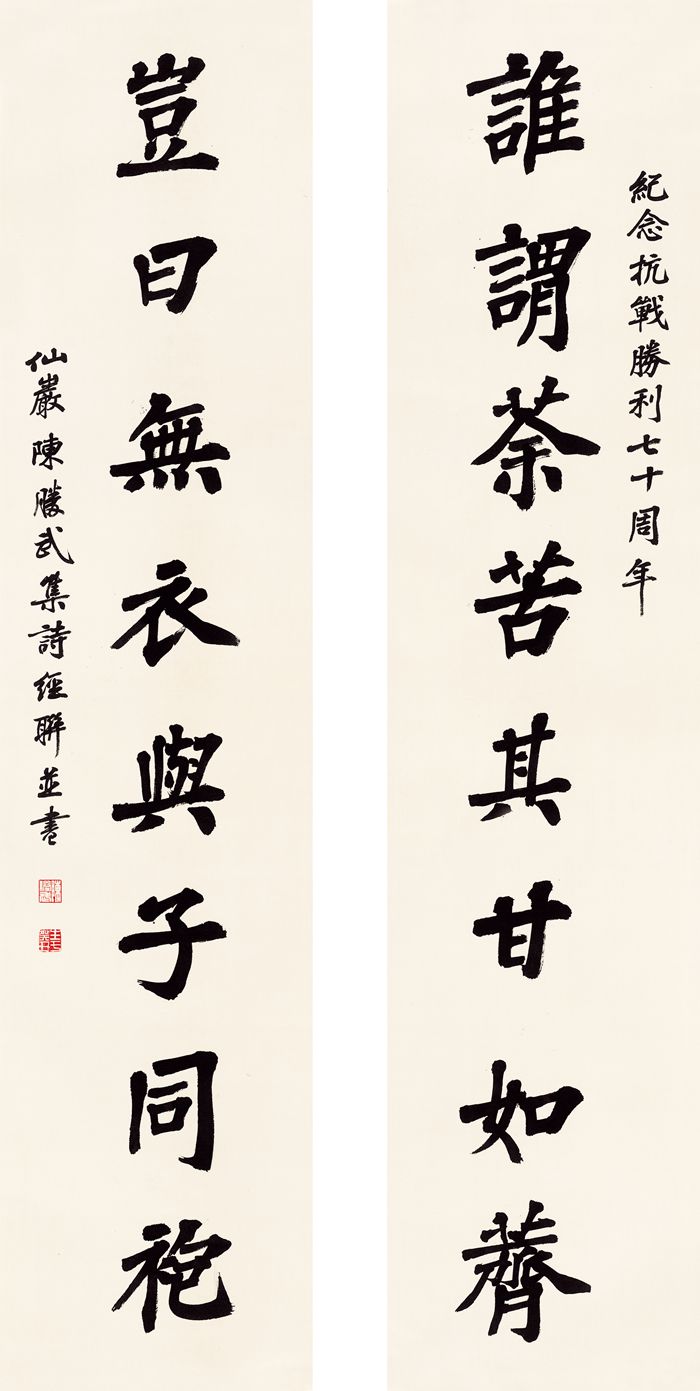 紀念抗戰勝利七十周年
誰謂荼苦其甘如薺
豈曰無衣與子同袍
仙巖陳勝武集詩經聯並書